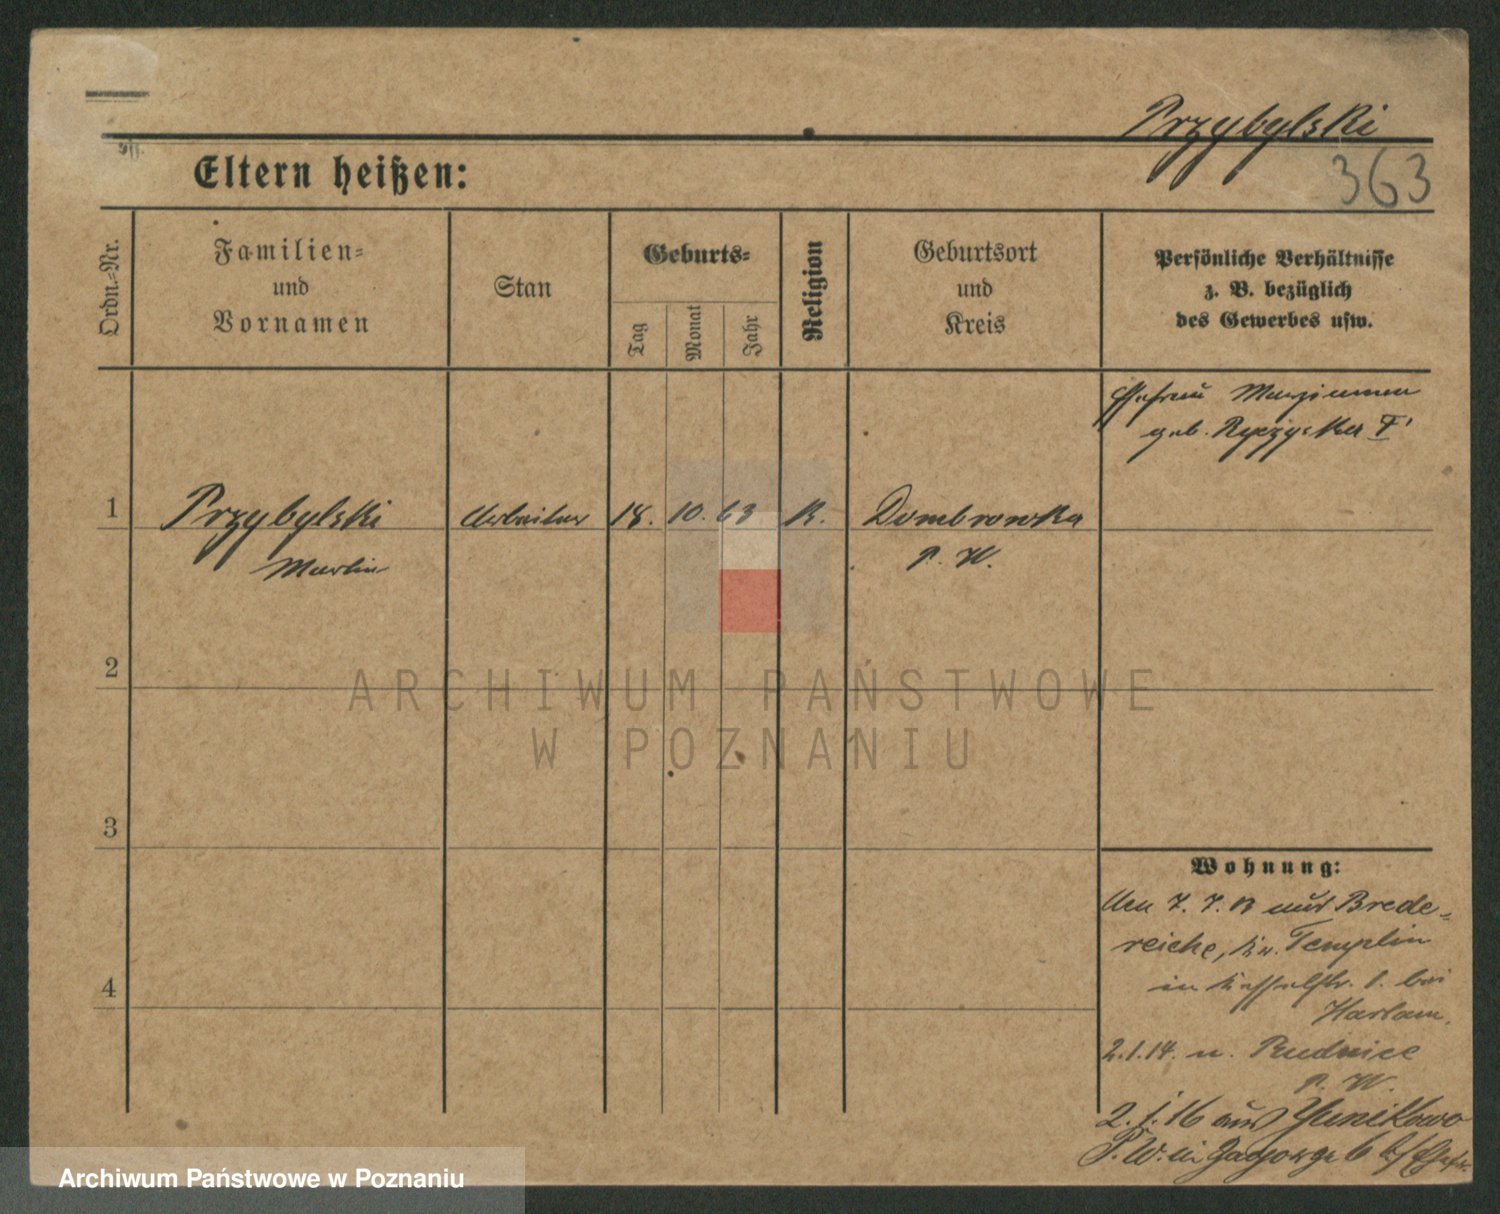 Przybylski
363
Eltern heißen:
Ordn.-Nr.
Familien-
und
Vornamen
Stan
Geburts-
Tag
Monat
Jahr
Religion
Geburtsort
und
Kreis
Persönliche Verhältnisse
z. B. bezüglich
des Gewerbes usw.
Ehefrau
geb.
1
Przybylski
Martin
Arbeiter
18.
10.
63
K.
Dombrowka
P. W.
2
3
4
Wohnung:
7. 7. aus Brede-
reiche, Kr. Templin
in 1. bei
2.1.14. n. Rudnice
P. W.
2. 1. 16 aus Junikowo
P. W. in 6
ARCHIWUM PAŃSTWOWE
W POZNANIU
Archiwum Państwowe w Poznaniu